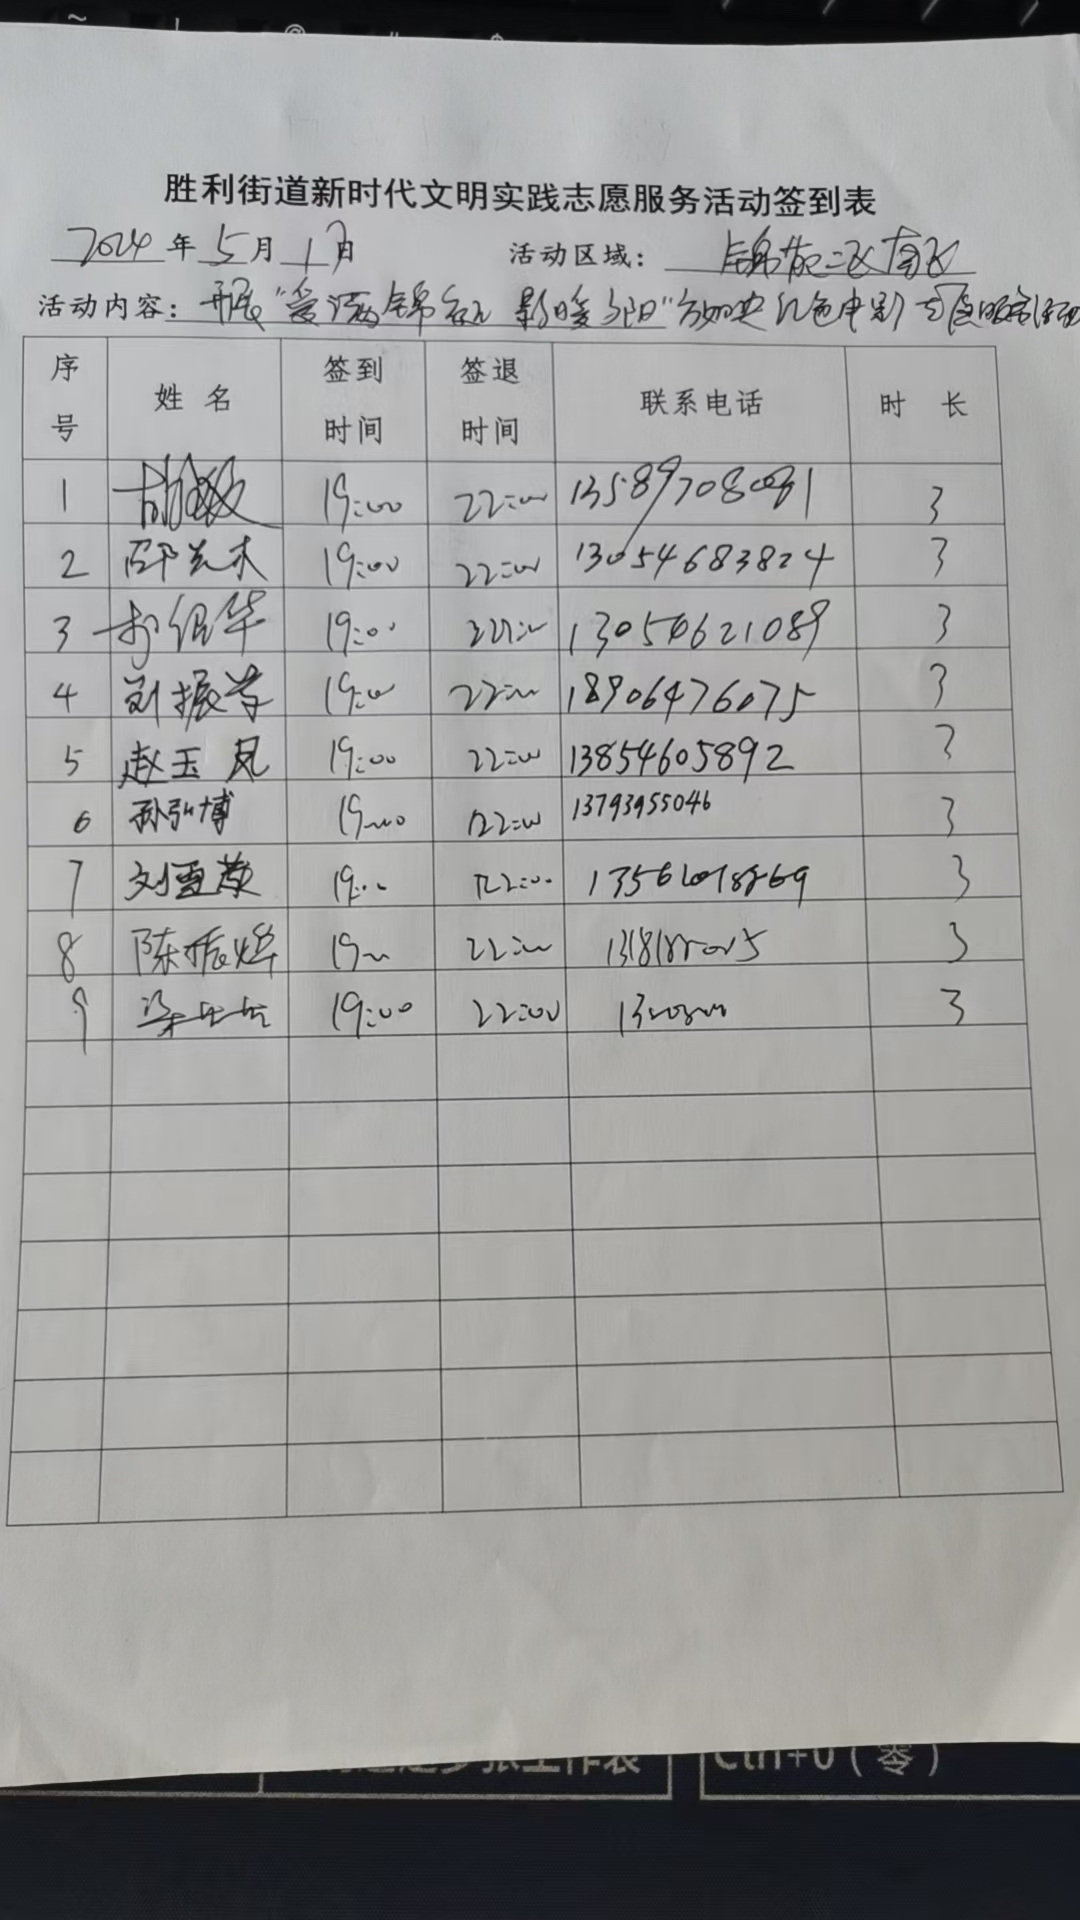 胜利街道新时代文明实践志愿服务活动签到表
2024年5月17日 活动区域：锦苑二区南区
活动内容：开展"爱满锦苑 影暖夕阳"放映红色电影志愿服务活动
序号 姓名 签到时间 签退时间 联系电话 时长
1 胡敏 19:00 22:00 3
2 邵光木 19:00 22:00 13054683824 3
3 19:00 22:00 13054621089 3
4 刘振学 19:00 22:00 18906476075 3
5 赵玉凤 19:00 22:00 13854605892 3
6 孙弘博 19:00 22:00 13793955046 3
7 刘雪 19:00 22:00 3
8 陈振烨 19:00 22:00 3
9 梁 19:00 22:00 3
Ctrl+0（零）